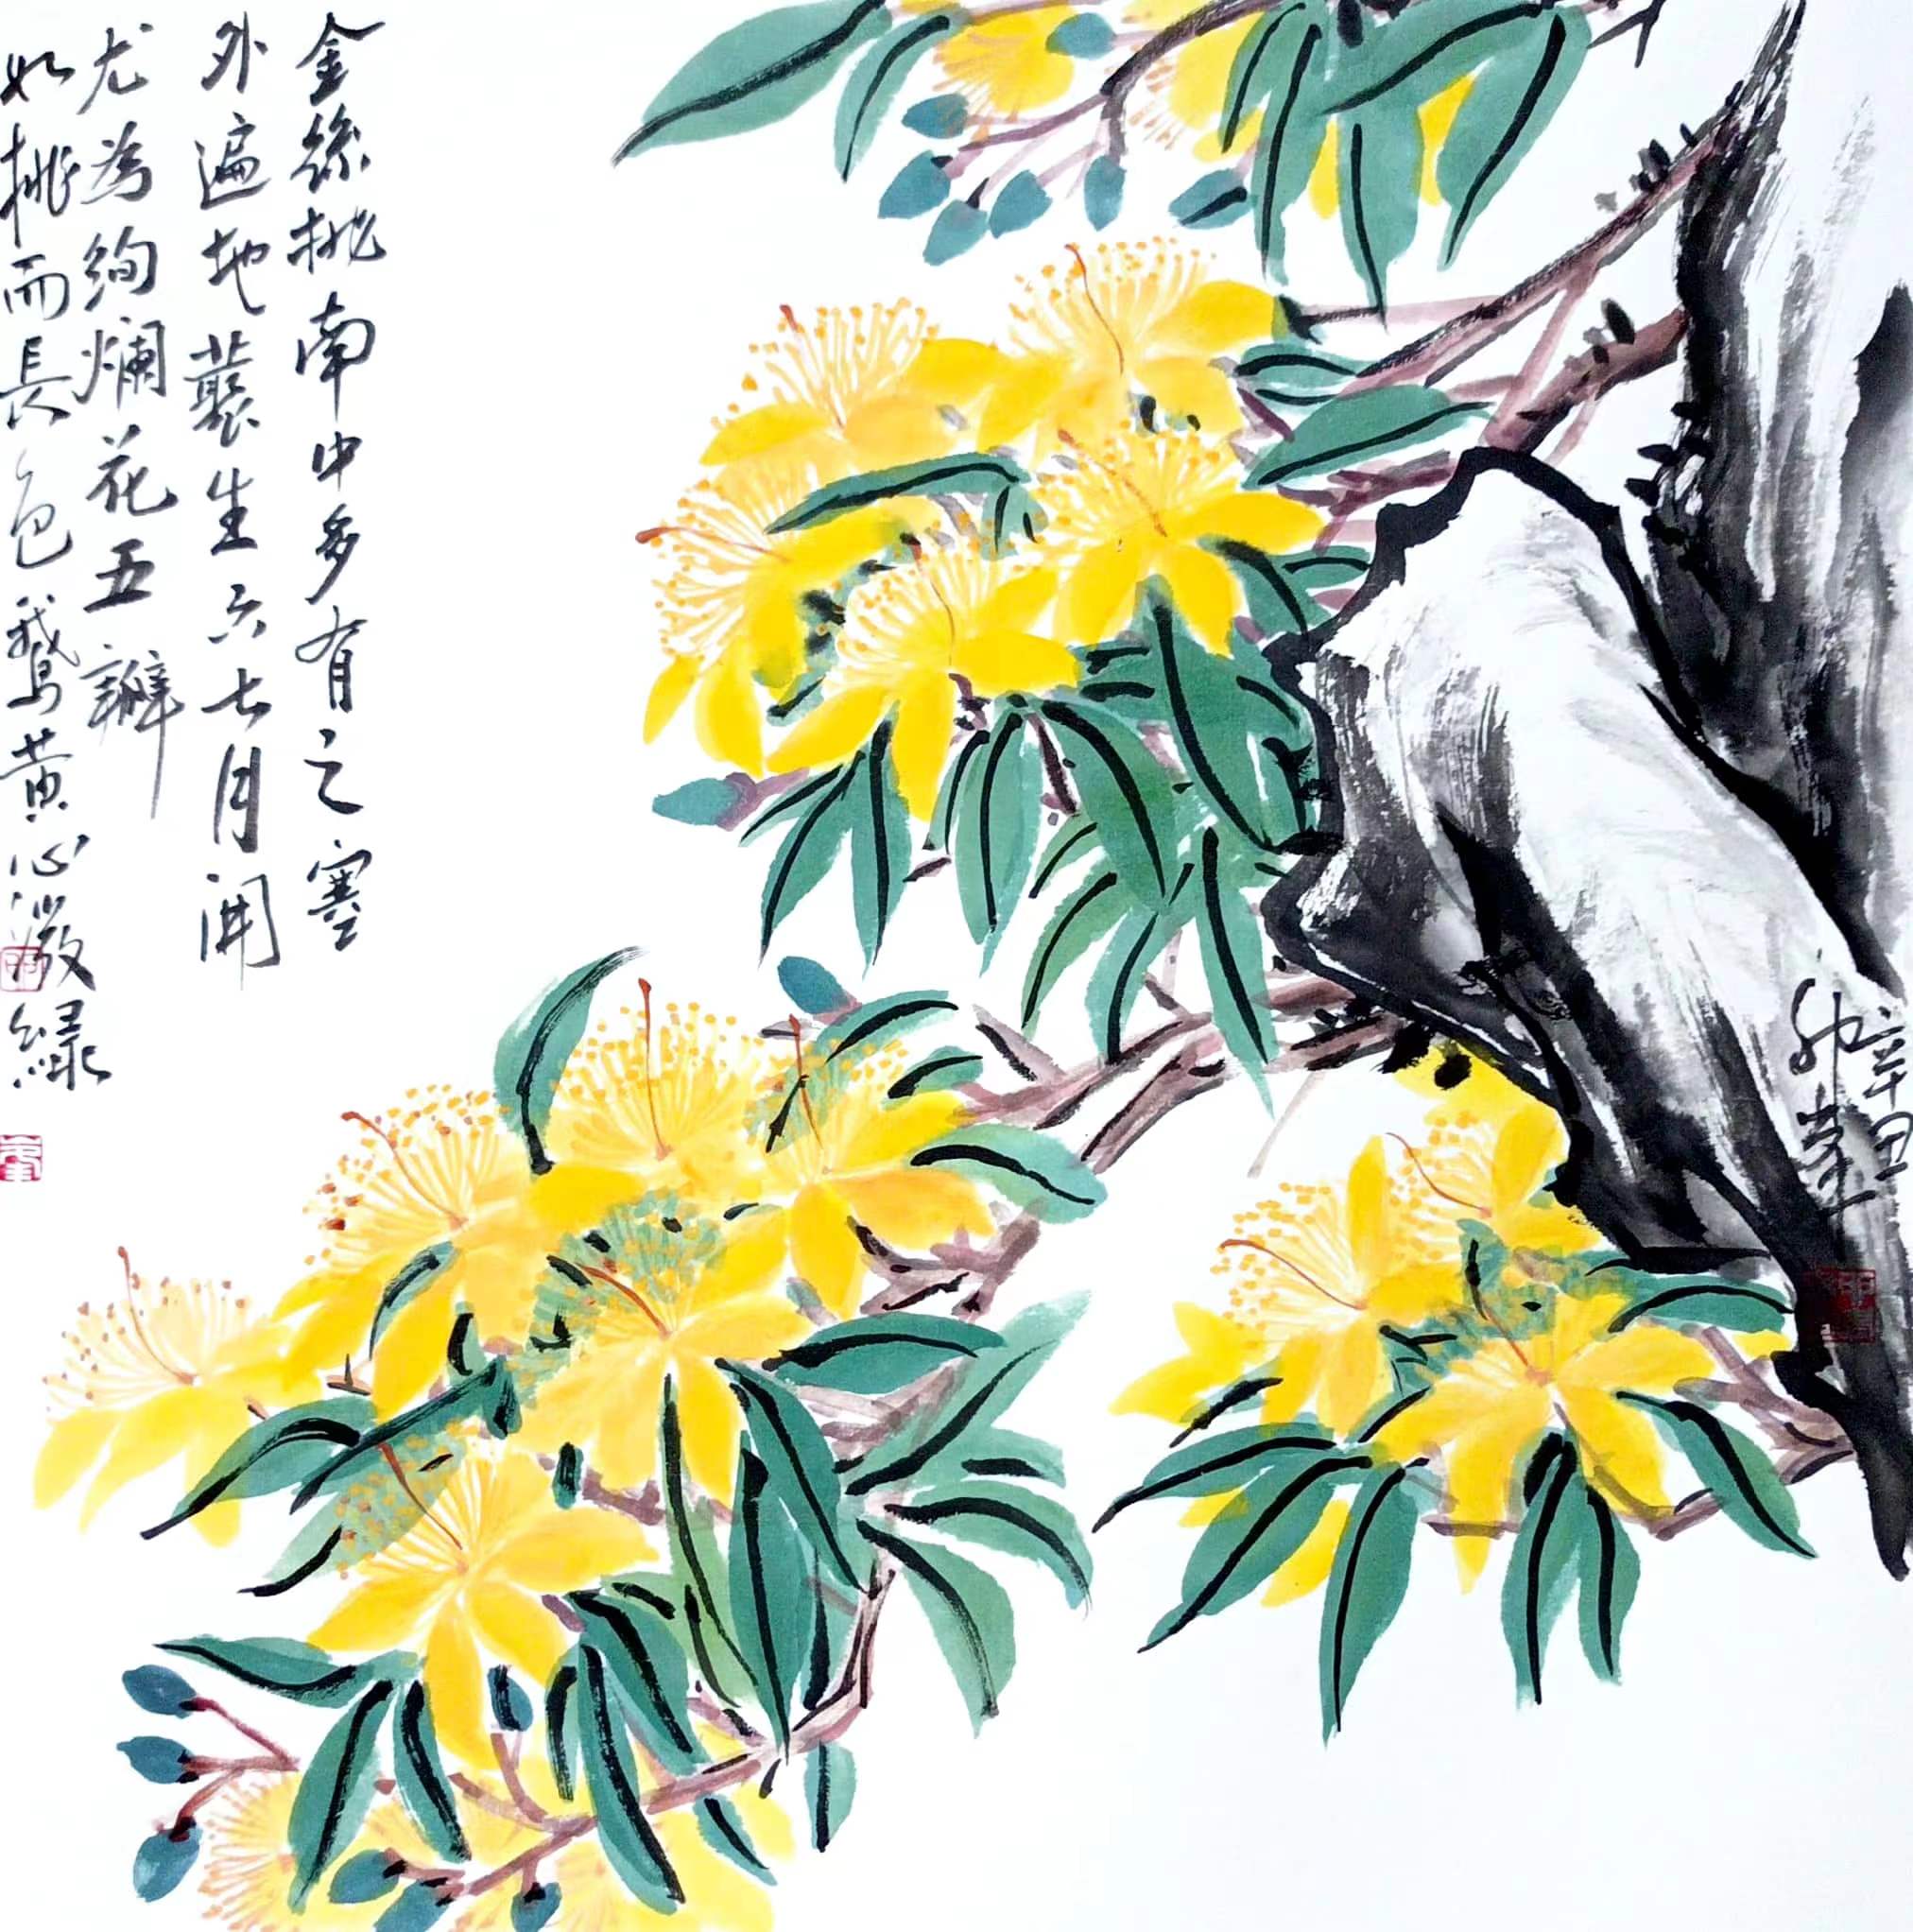 金絲桃南中多有之塞
外遍地叢生六七月開
尤為絢爛花五瓣
如桃而長色鵝黃心微綠
辛丑